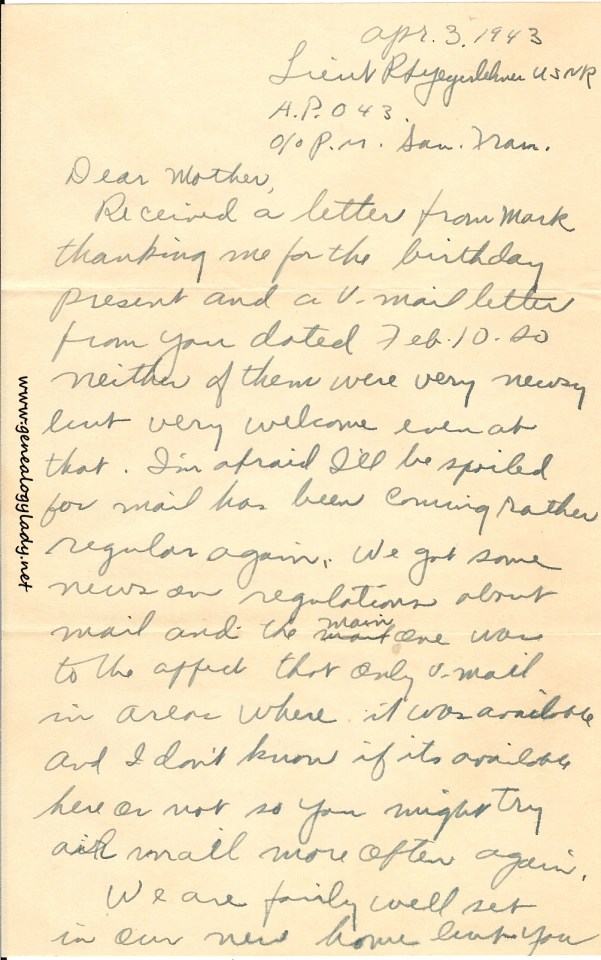 Apr. 3, 1943
Lieut R S Yegerlehner USNR
A.P.O 43.
c/o P.M. San. Fran.
Dear Mother,
Received a letter from Mark
thanking me for the birthday
present and a V-mail letter
from you dated Feb. 10. so
neither of them were very newsy
but very welcome even at
that. I'm afraid I'll be spoiled
for mail has been coming rather
regular again. We got some
news on regulations about
mail and the main one was
to the affect that only V-mail
in areas where it was available
and I don't know if its available
here or not so you might try
air mail more often again.
We are fairly well set
in our new home but you
www.genealogylady.net